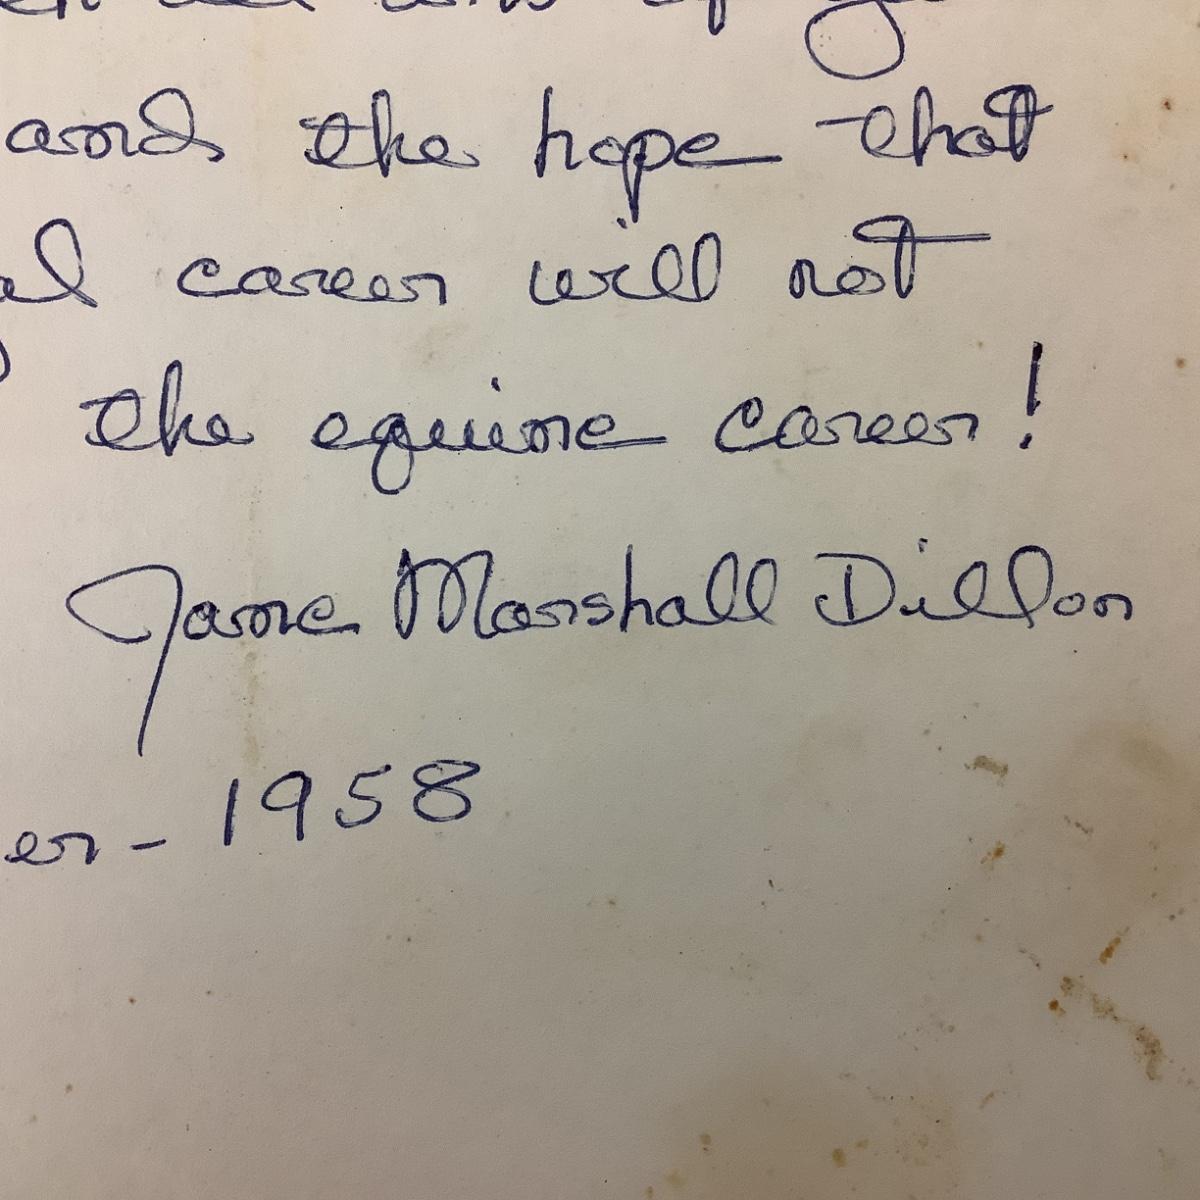 and the hope that
al career will not
the equine career!
Jane Marshall Dillon
er - 1958